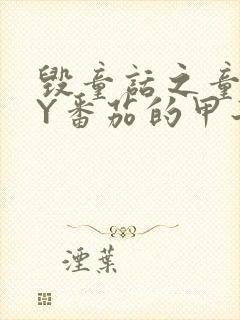 毁童话之童
Y番茄的甲
湮叶